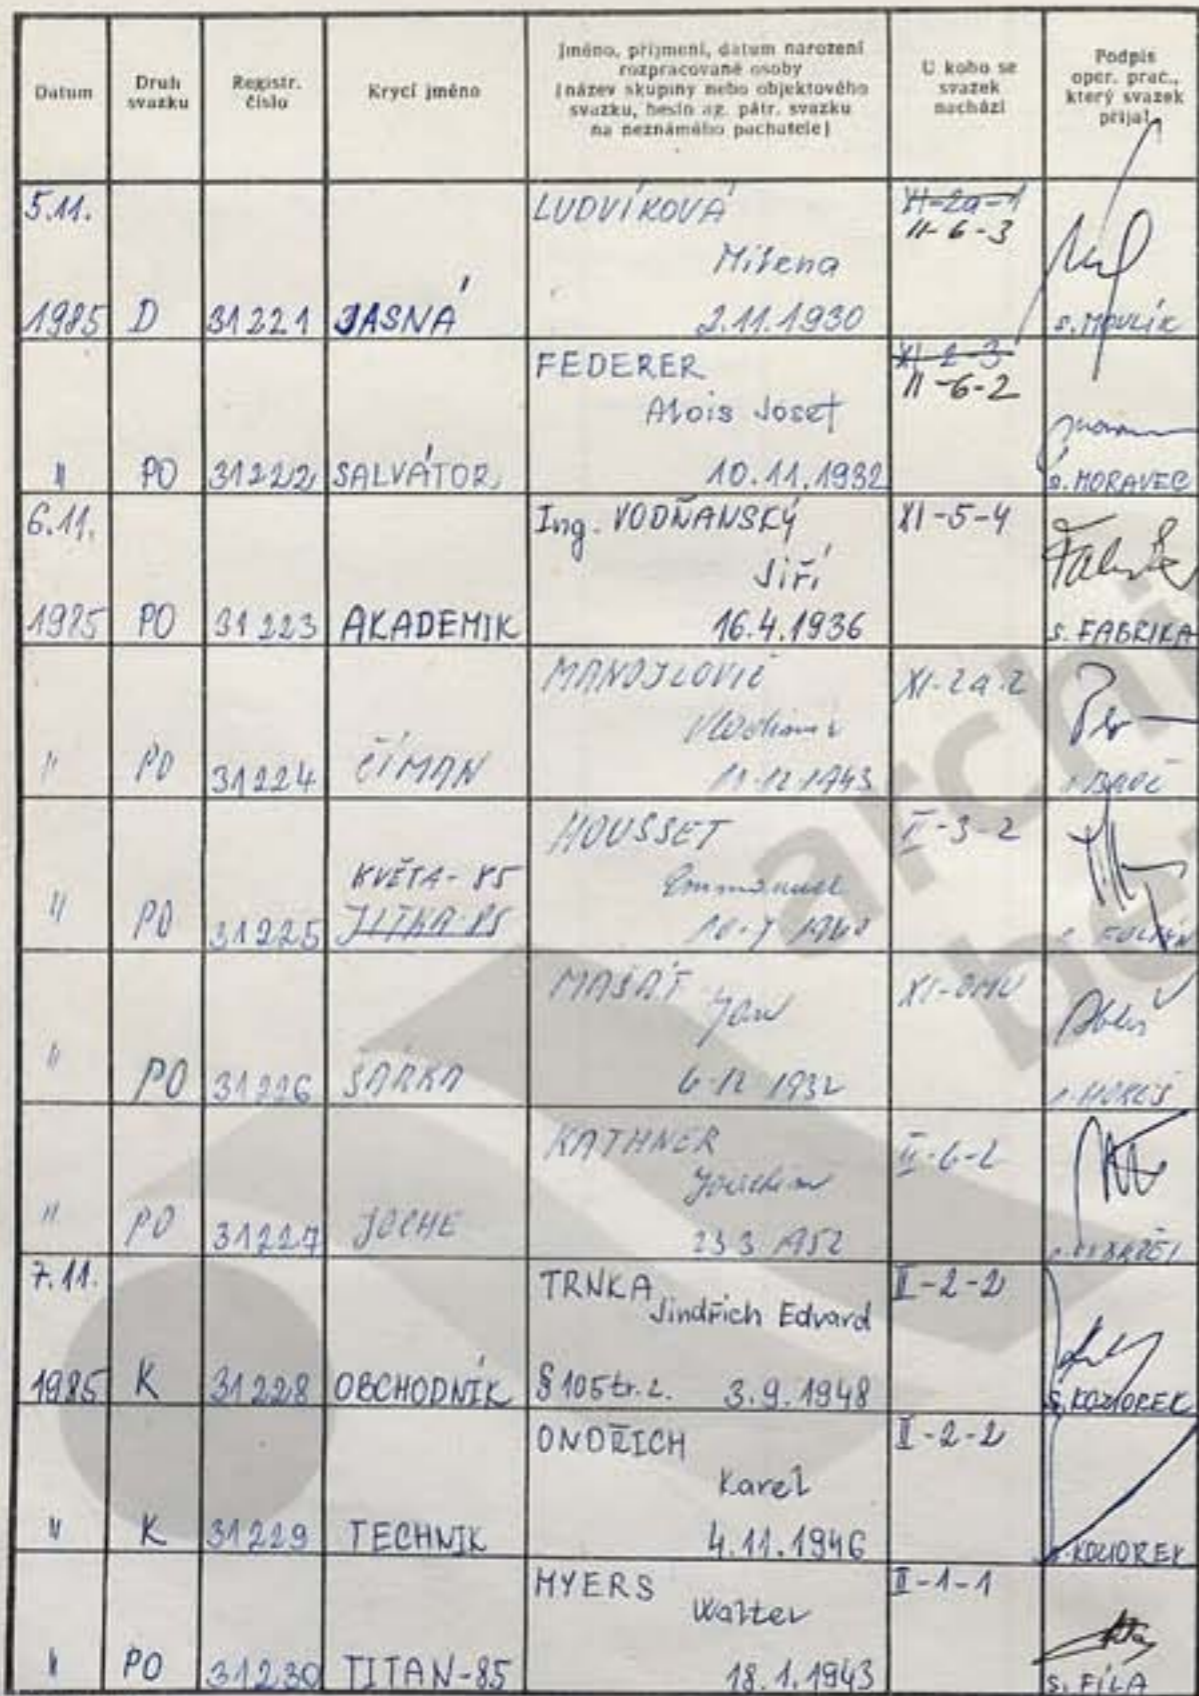 Datum
Druh
svazku
Registr.
číslo
Krycí jméno
Jméno, příjmení, datum narození
rozpracované osoby
(název skupiny nebo objektového
svazku, heslo ag. pátr. svazku
na neznámého pachatele)
U koho se
svazek
nachází
Podpis
oper. prac.,
který svazek
přijal
5.11.
1985 D 31221 JASNÁ
LUDVÍKOVÁ
Milena
2.11.1930
XI-2a-1
II-6-3
s. MOULÍK
" PO 31222 SALVÁTOR
FEDERER
Alois Josef
10.11.1932
XI-2-3
II-6-2
s. MORAVEC
6.11.
1985 PO 31223 AKADEMIK
Ing. VODŇANSKÝ
Jiří
16.4.1936
XI-5-4
s. FABRIKA
" PO 31224 ČIMAN
MANOJLOVIČ
Vladimir
12.1943
XI-2a-2
" PO 31225
KVĚTA-85
JITKA-85
HOUSSET
Emmanuel
I-3-2
" PO 31226 ŠÁRKA
MAŠÁT
Jan
6.12.1932
XI-OMU
" PO 31227 JOCHE
KATHNER
Joachim
23.3.1952
II-6-2
7.11.
1985 K 31228 OBCHODNÍK
TRNKA
Jindřich Edvard
§ 105 tr.z. 3.9.1948
II-2-2
s. KOZIOREK
" K 31229 TECHNIK
ONDŘICH
Karel
4.11.1946
II-2-2
s. KOZIOREK
" PO 31230 TITAN-85
MYERS
Walter
18.1.1943
II-1-1
s. FILA